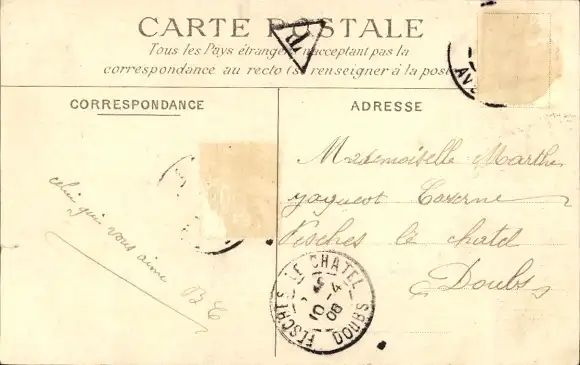 CARTE POSTALE
Tous les Pays étrangers n'acceptant pas la
correspondance au recto (se renseigner à la poste
CORRESPONDANCE
ADRESSE
celui qui vous aime
BC
Mademoiselle Marthe
Caserne
Fesches le chatel
Doubs
FESCHES-LE-CHATEL
10-4
06
DOUBS
AV